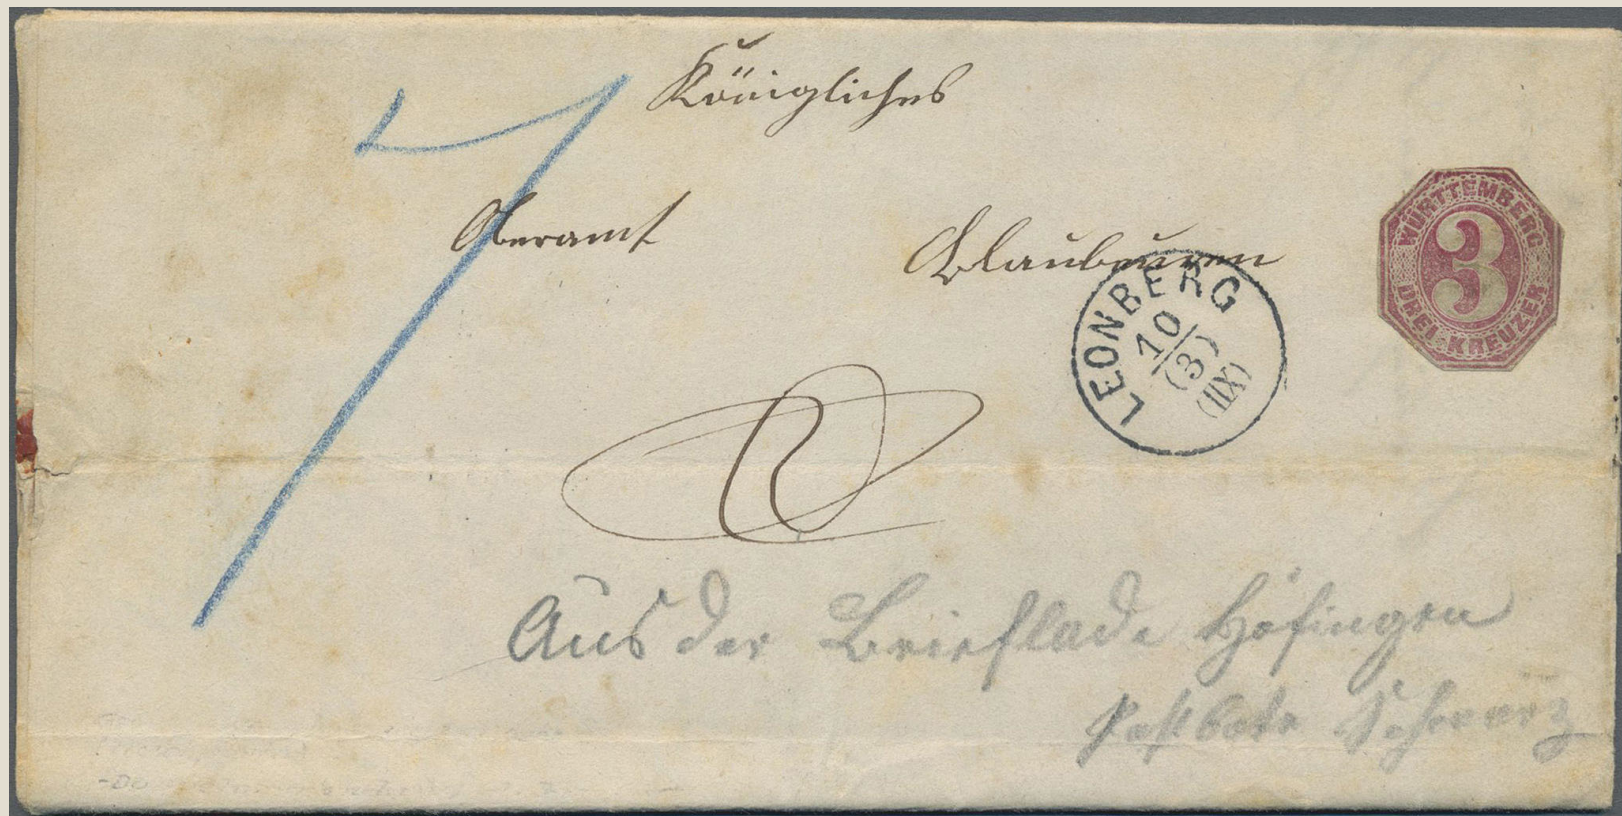 Königliches
7
Oberamt Blaubeuren
WÜRTTEMBERG
3
DREI KREUZER
LEONBERG
10
(3)
(IIX)
Aus der Brieflade Höfingen
Postbote Schwarz